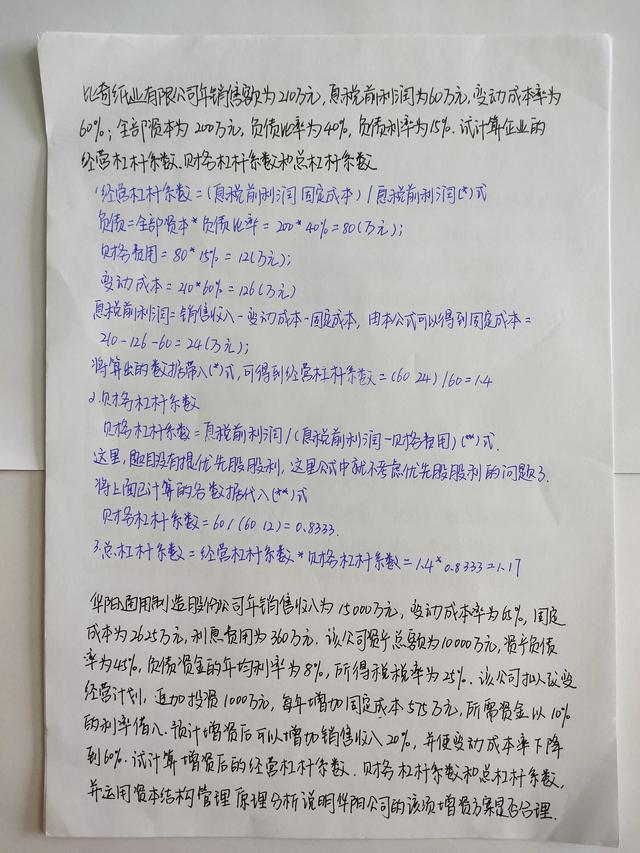 比奇纸业有限公司年销售额为210万元,息税前利润为60万元,变动成本率为
60%;全部资本为200万元,负债比率为40%,负债利率为15%.试计算企业的
经营杠杆系数、财务杠杆系数和总杠杆系数
1.经营杠杆系数=(息税前利润 固定成本)/息税前利润(*)式
负债=全部资本*负债比率=200*40%=80(万元);
财务费用=80*15%=12(万元);
变动成本=210*60%=126(万元)
息税前利润=销售收入-变动成本-固定成本,由本公式可以得到固定成本=
210-126-60=24(万元);
将算出的数据带入(*)式,可得到经营杠杆系数=(60 24)/60=1.4
2.财务杠杆系数
财务杠杆系数=息税前利润/(息税前利润-财务费用)(**)式.
这里,题目没有提优先股股利,这里公式中就不考虑优先股股利的问题了.
将上面已计算的各数据代入(**)式
财务杠杆系数=60/(60 12)=0.8333.
3.总杠杆系数=经营杠杆系数*财务杠杆系数=1.4*0.8333=1.17
华阳通用制造股份公司年销售收入为15000万元,变动成本率为65%,固定
成本为2625万元,利息费用为360万元.该公司资产总额为10000万元,资产负债
率为45%,负债资金的年均利率为8%,所得税税率为25%.该公司拟改变
经营计划,追加投资1000万元,每年增加固定成本575万元,所需资金以10%
的利率借入.预计增资后可以增加销售收入20%,并使变动成本率下降
到60%.试计算增资后的经营杠杆系数、财务杠杆系数和总杠杆系数,
并运用资本结构管理原理分析说明华阳公司的该项增资方案是否合理.